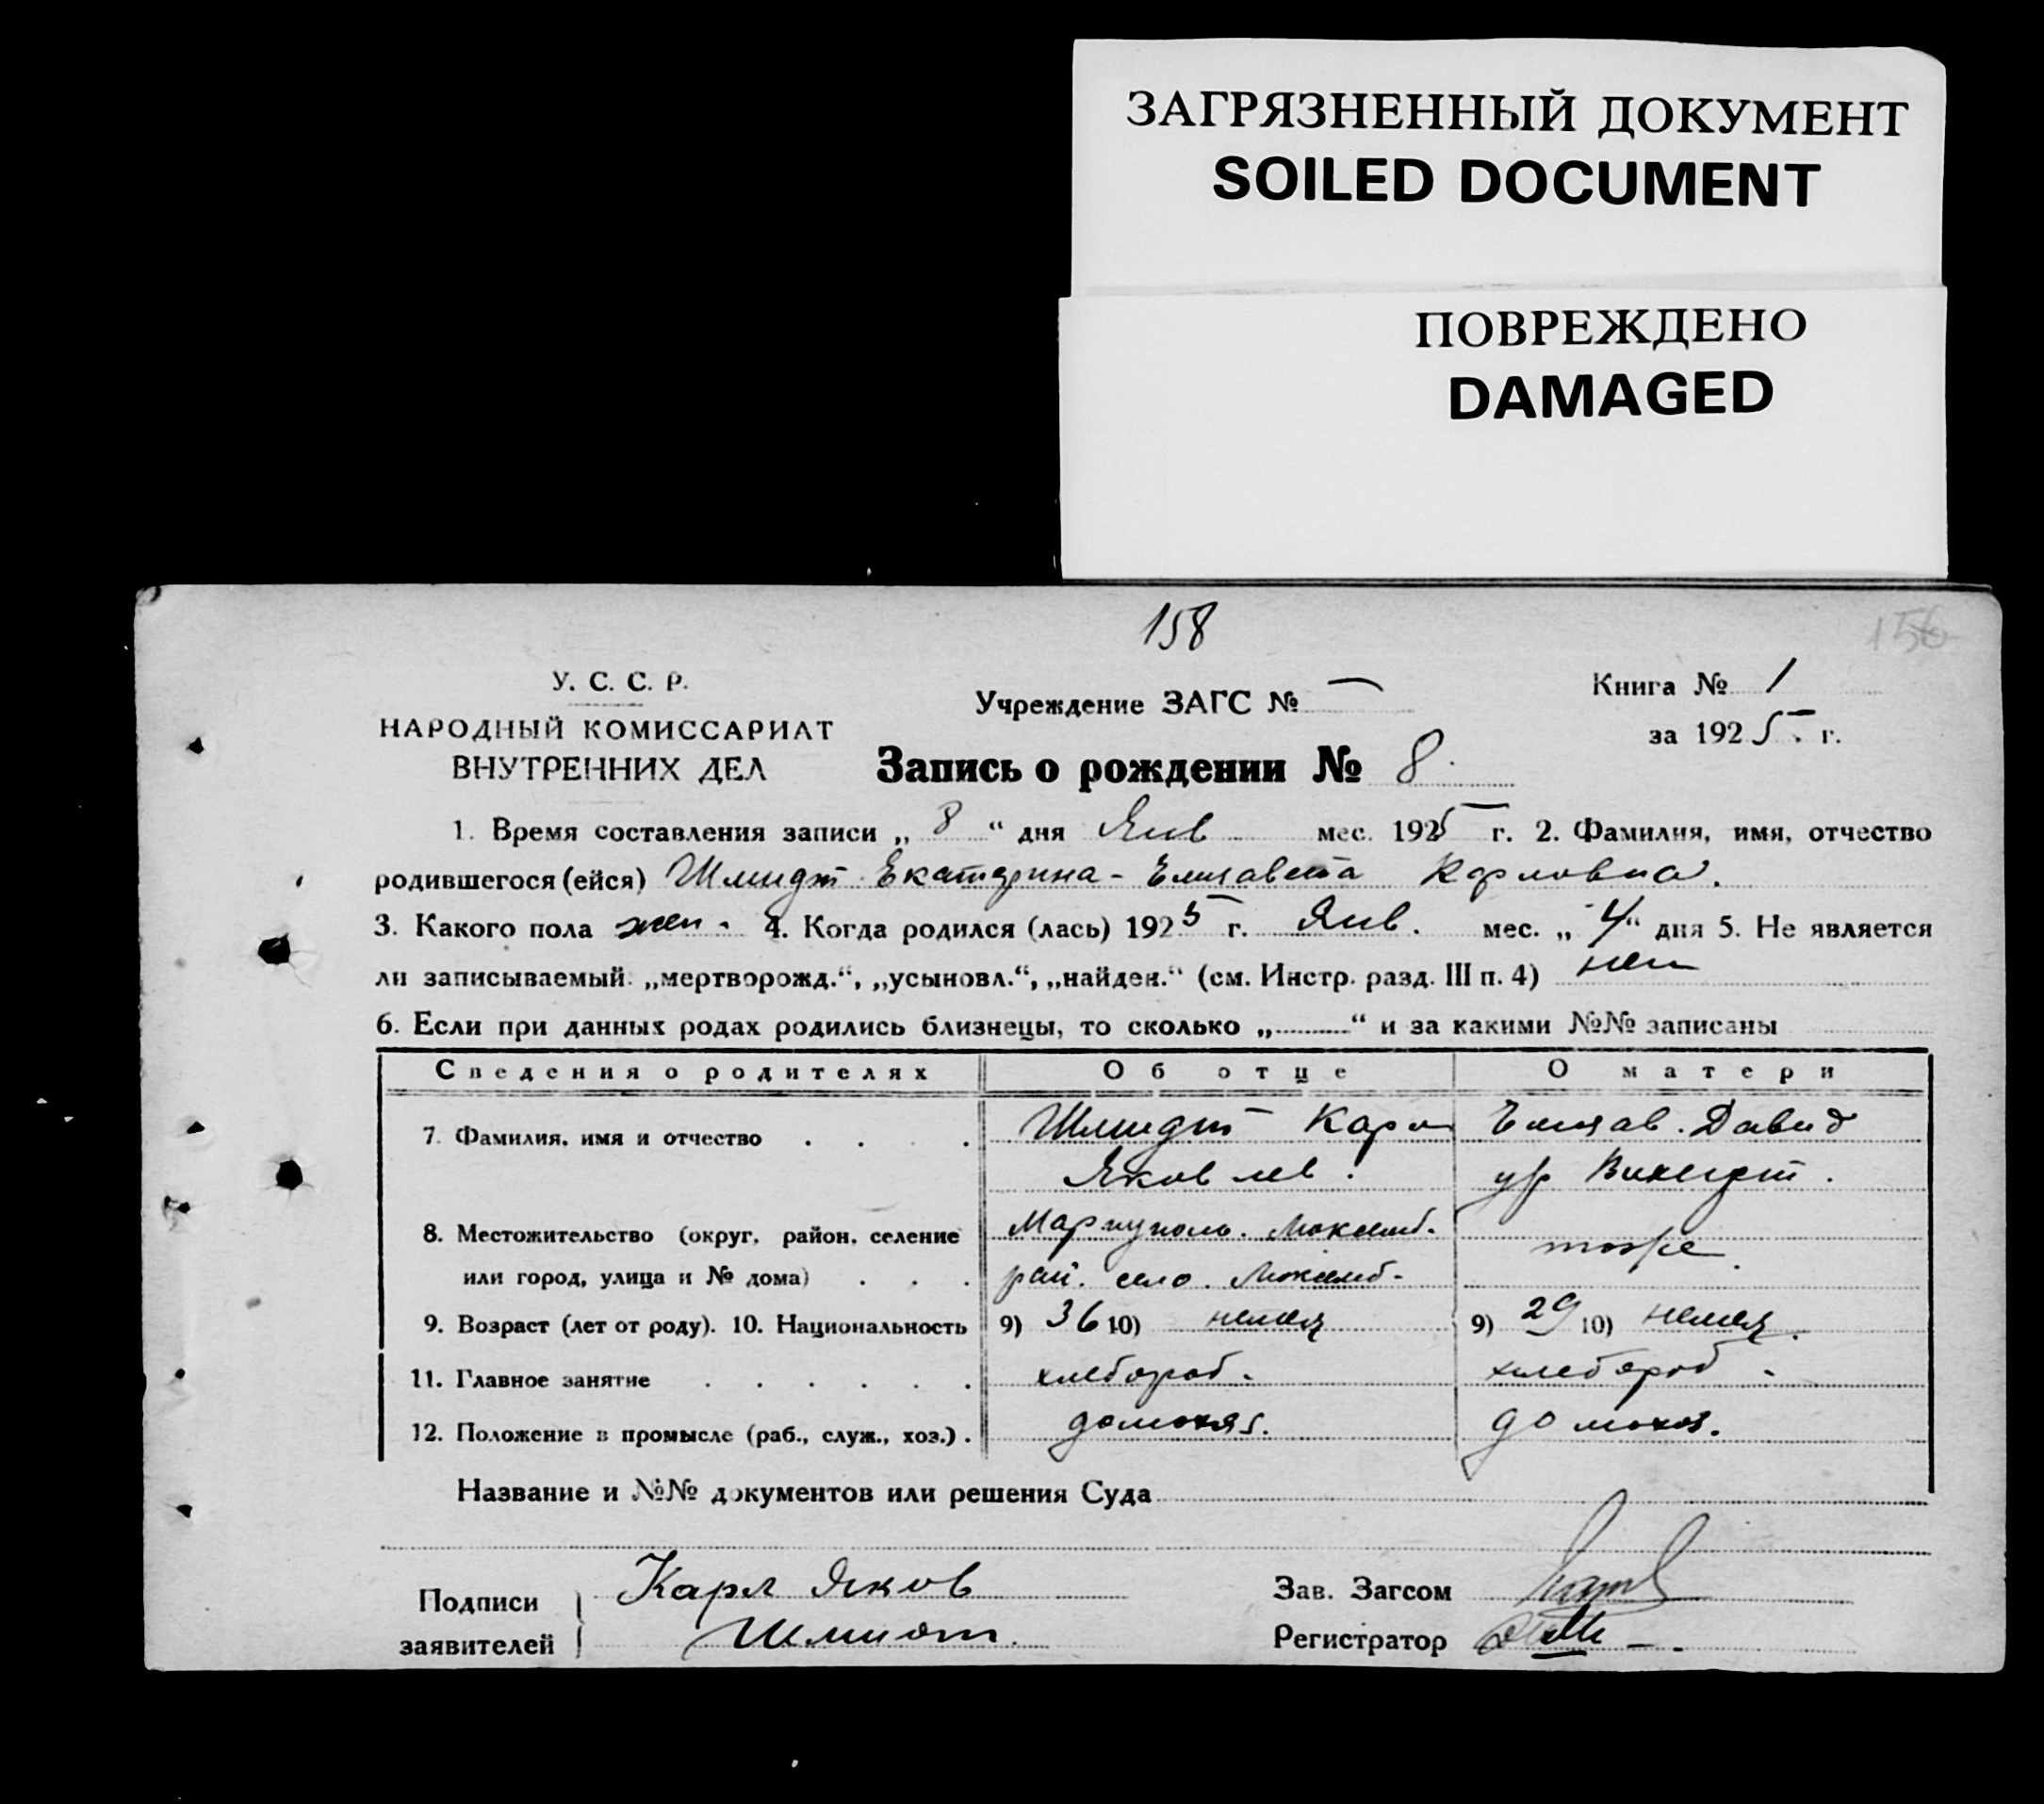 ЗАГРЯЗНЕННЫЙ ДОКУМЕНТ
SOILED DOCUMENT
ПОВРЕЖДЕНО
DAMAGED
158
156
У. С. С. Р.
НАРОДНЫЙ КОМИССАРИАТ
ВНУТРЕННИХ ДЕЛ
Учреждение ЗАГС № —
Книга № 1
за 1925 г.
Запись о рождении № 8.
1. Время составления записи „ 8 “ дня Янв мес. 1925 г. 2. Фамилия, имя, отчество
родившегося (ейся) Шмидт Екатерина - Елизавета Карловна.
3. Какого пола жен. 4. Когда родился (лась) 1925 г. Янв. мес. „ 4 “ дня 5. Не является
ли записываемый „мертворожд.“, „усыновл.“, „найден.“ (см. Инстр. разд. III п. 4) нет
6. Если при данных родах родились близнецы, то сколько „ “ и за какими №№ записаны
Сведения о родителях Об отце О матери
7. Фамилия, имя и отчество Шмидт Карл Елизав. Давид
Яковлев. ур
8. Местожительство (округ, район, селение Мариуполь.
или город, улица и № дома) рай. село. тоже
9. Возраст (лет от роду). 10. Национальность 9) 36 10) немец 9) 29 10) немец.
11. Главное занятие хлебороб. хлебороб.
12. Положение в промысле (раб., служ., хоз.) домохоз. домохоз.
Название и №№ документов или решения Суда
Подписи заявителей Карл Яков
Шмидт.
Зав. Загсом
Регистратор